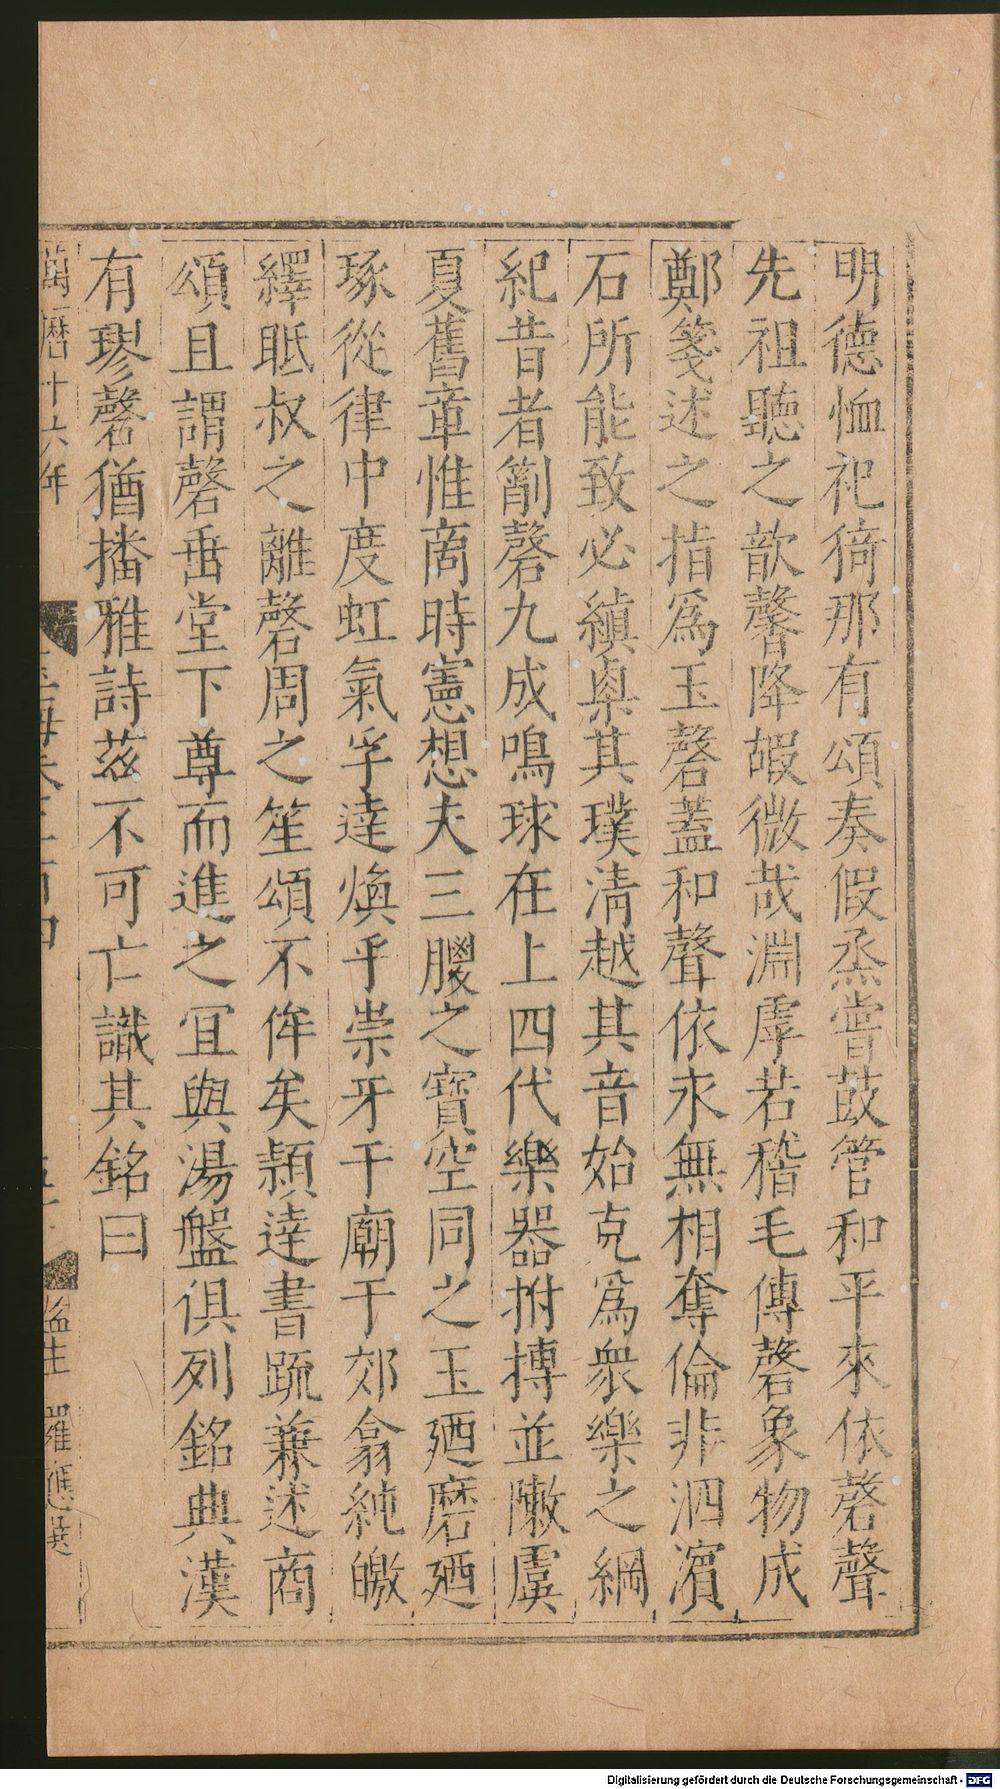 明德恤祀猗那有頌奏假烝嘗鼓管和平來依磬聲
先祖聽之歆馨降嘏微哉淵虖若稽毛傳磬象物成
鄭箋述之指爲玉磬蓋和聲依永無相奪倫非泗濱
石所能致必縝㮚其璞清越其音始克爲衆樂之綱
紀昔者劗磬九成鳴球在上四代樂器拊搏並敶虞
夏舊章惟商時憲想夫三朡之寶空同之玉廼磨廼
琢從律中度虹氣孚達煥乎崇牙于廟于郊翕純皦
繹眡叔之離磬周之笙頌不侔矣潁達書疏兼述商
頌且謂磬垂堂下尊而進之宜與湯盤俱列銘典漢
有璆磬猶播雅詩茲不可亡識其銘曰
萬曆十六年
監生羅應
Digitalisierung gefördert durch die Deutsche Forschungsgemeinschaft - DFG